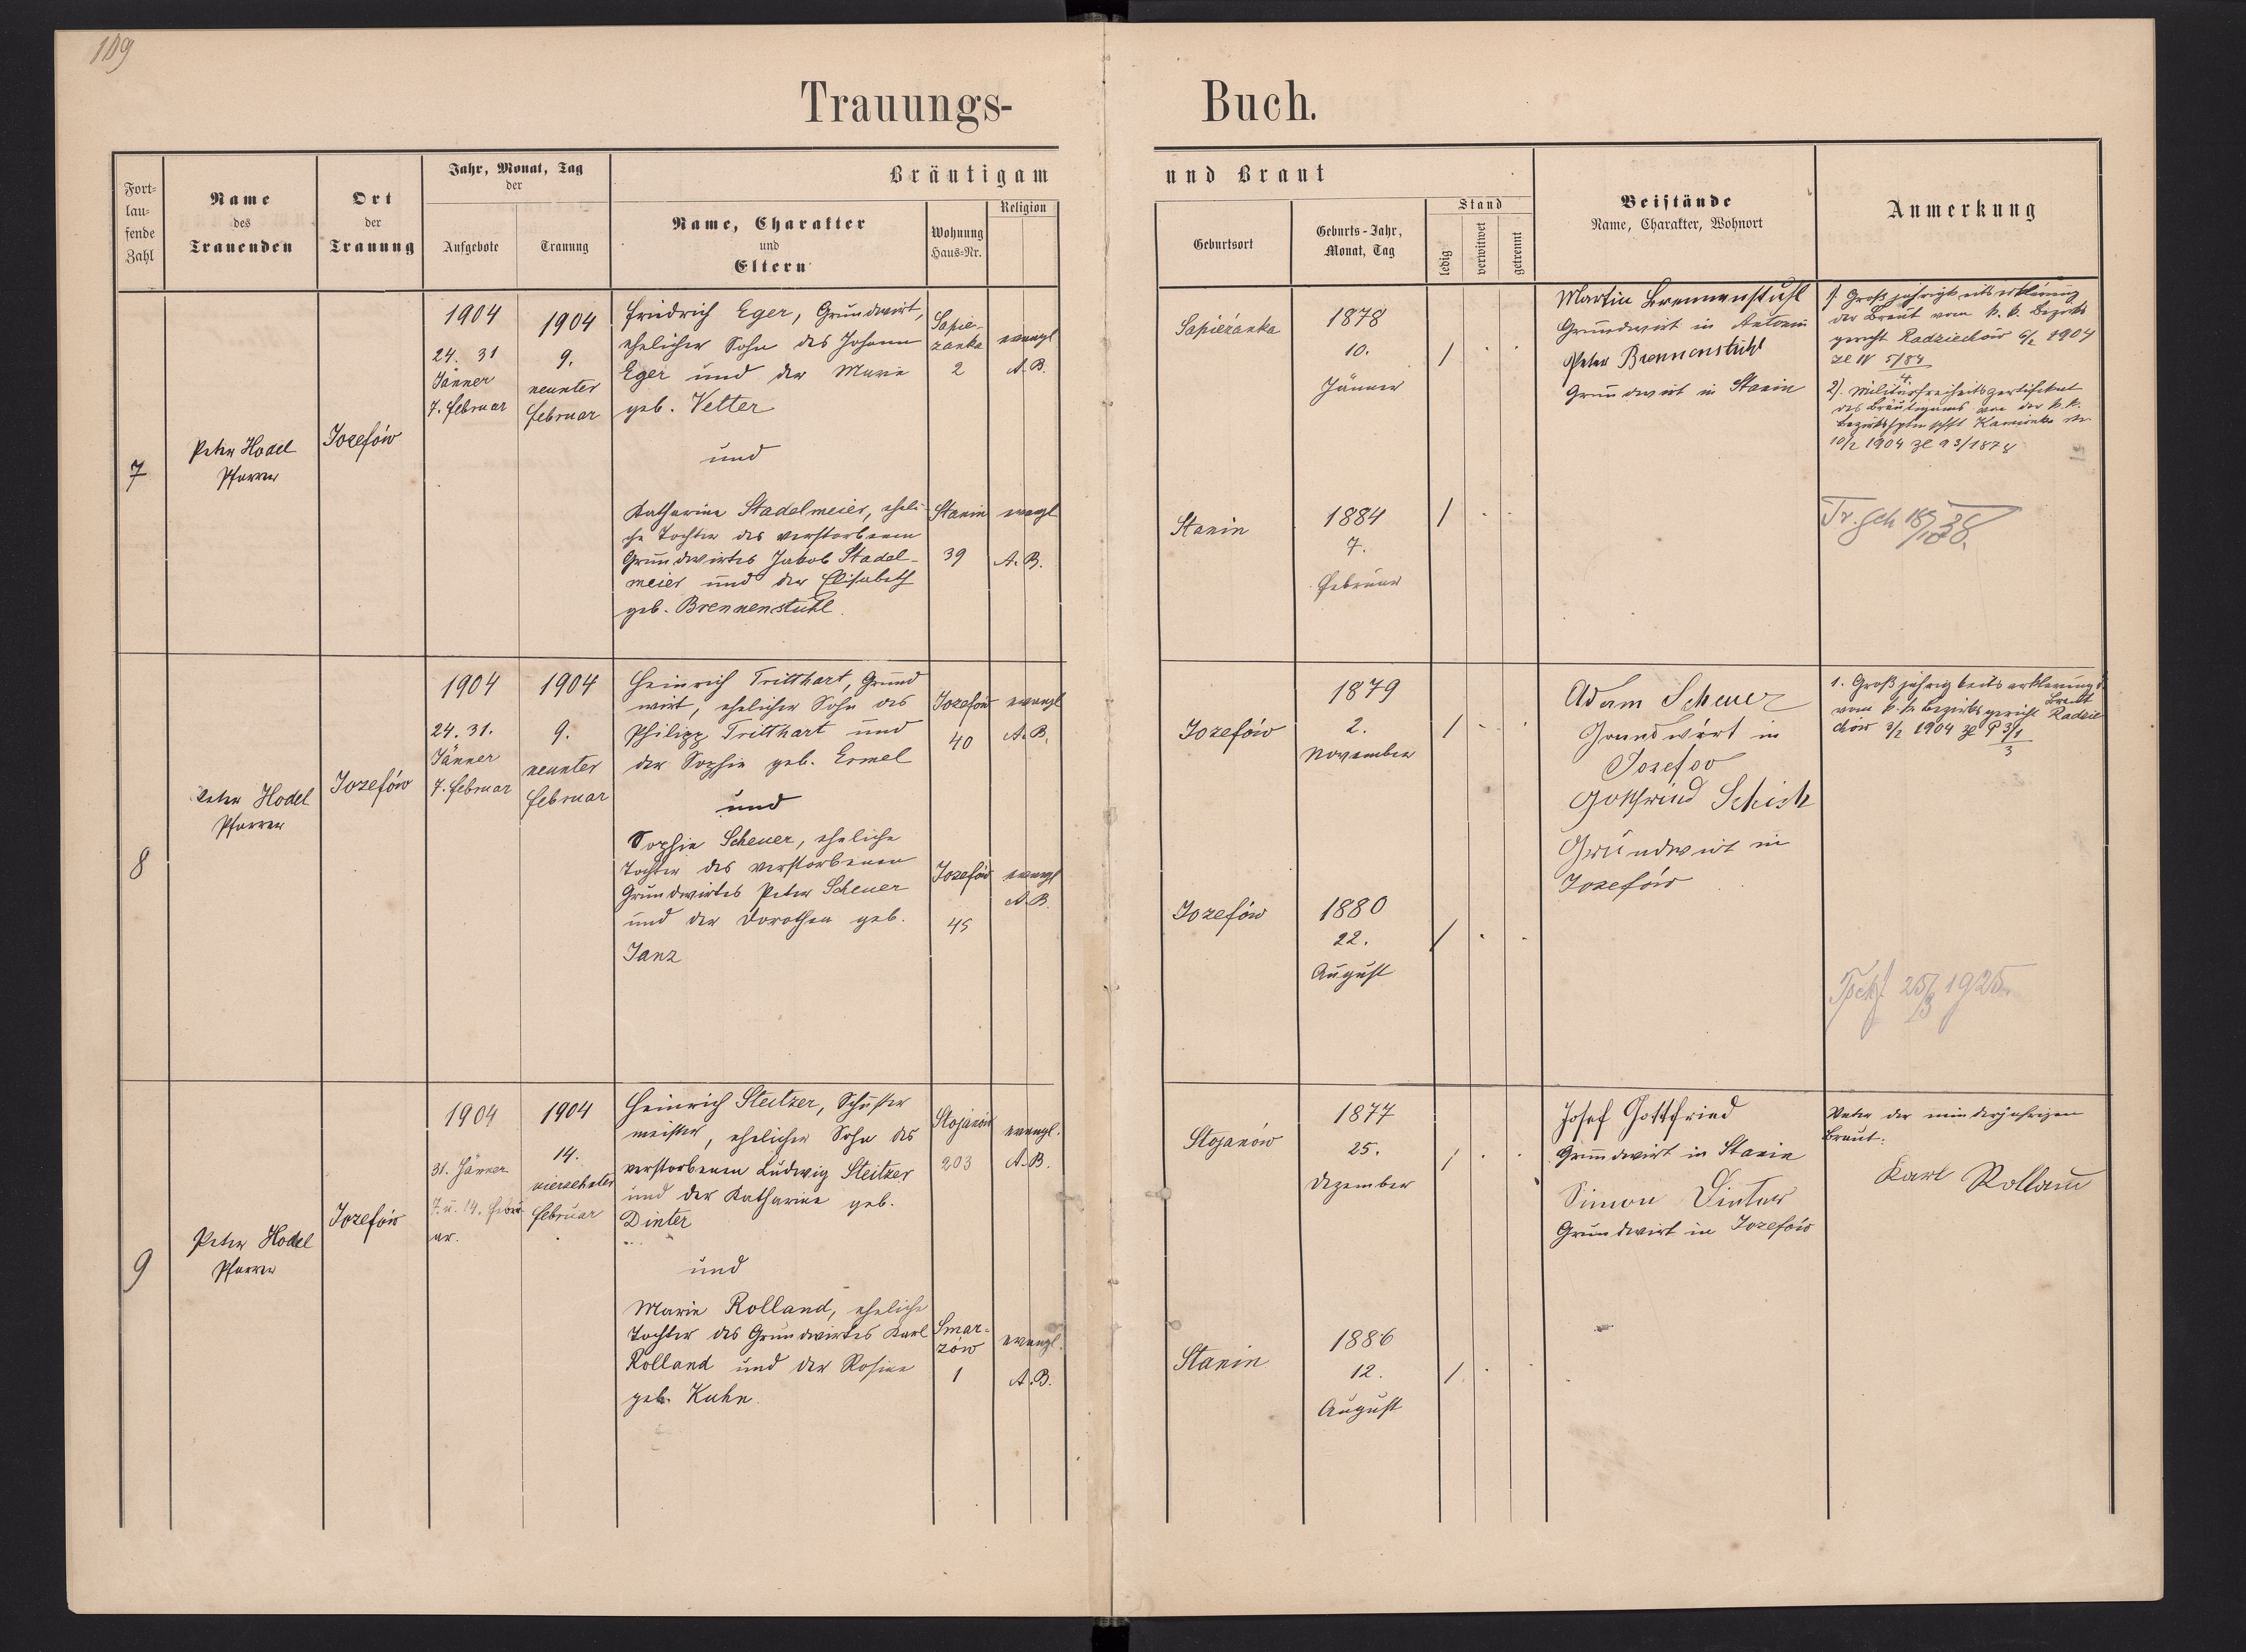 109
Trauungs- Buch.
Fort-
lau-
fende
Zahl
Name
des
Trauenden
Ort
der
Trauung
Jahr, Monat, Tag
der
Aufgebote
Trauung
Bräutigam und Braut
Name, Charakter
und
Eltern
Wohnung
Haus-Nr.
Religion
Geburtsort
Geburts-Jahr,
Monat, Tag
Stand
ledig
verwitwet
getrennt
Beistände
Name, Charakter, Wohnort
Anmerkung
7
Peter Hodel
Pfarrer
Jozefów
1904
24. 31
Jänner
7. Februar
1904
9.
neunter
Februar
Friedrich Eger, Grundwirt,
ehelicher Sohn des Johann
Eger und der Marie
geb. Vetter
und
Katharina Stadelmeier, eheli-
che Tochter des verstorbenen
Grundwirtes Jakob Stadel-
meier und der Elisabeth
geb. Brennenstuhl.
Sapie-
zanka
2
evangl
A. B.
Stanin
39
evangl
A. B.
Sapieżanka
1878
10.
Jänner
/
Stanin
1884
7.
Februar
/
Martin Brennenstuhl
Grundwirt in Antonin
Peter Brennenstuhl
Grundwirt in Stanin
1. Großjährigkeitserklärung
der Braut vom k. k. Bezirks
gericht Radziechów 6/2 1904
2). Militärfreiheitszertifikat
des Bräutigams von der k. k.
10/2 1904
8
Peter Hodel
Pfarrer
Jozefów
1904
24. 31.
Jänner
7. Februar
1904
9.
neunter
Februar
Heinrich Tritthart, Grund
wirt, ehelicher Sohn des
Philipp Tritthart und
der Sophie geb. Ermel
und
Sophie Scheuer, eheliche
Tochter des verstorbenen
Grundwirtes Peter Scheuer
und der Dorothea geb.
Janz
Jozefów
40
evangl
A. B.
Jozefów
45
evangl
A. B.
Jozefów
1879
2.
November
/
Jozefów
1880
22.
August
/
Adam Scheuer
Grundwirt in
Josefov
Gottfried Schick
Grundwirt in
Jozefów
1. Großjährigkeitserklärung d.
Braut
vom k. k. Bezirksgericht Radzie
chów 3/2 1904
25/3 1925
9
Peter Hodel
Pfarrer
Jozefów
1904
31. Jänner
7. u. 14. Febru-
ar.
1904
14.
vierzehnter
Februar
Heinrich Steitzer, Schuster
meister, ehelicher Sohn des
verstorbenen Ludwig Steitzer
und der Katharina geb.
Dinter
und
Marie Rolland, eheliche
Tochter des Grundwirtes Karl
Rolland und der Rosina
geb. Kuhn.
Stojanów
203
evangl.
A. B.
Smar-
zów
1
evangl.
A. B.
Stojanów
1877
25.
Dezember
/
Stanin
1886
12.
August
/
Josef Gottfried
Grundwirt in Stanin
Simon Dinter
Grundwirt in Jozefów
Vater der minderjährigen
Braut:
Karl Rolland